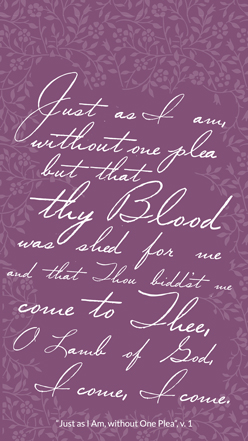 Just as I am,
without one plea
but that
thy Blood
was shed for me
and that Thou biddst me
come to Thee,
O Lamb of God,
I come, I come.
"Just as I Am, without One Plea", v. 1